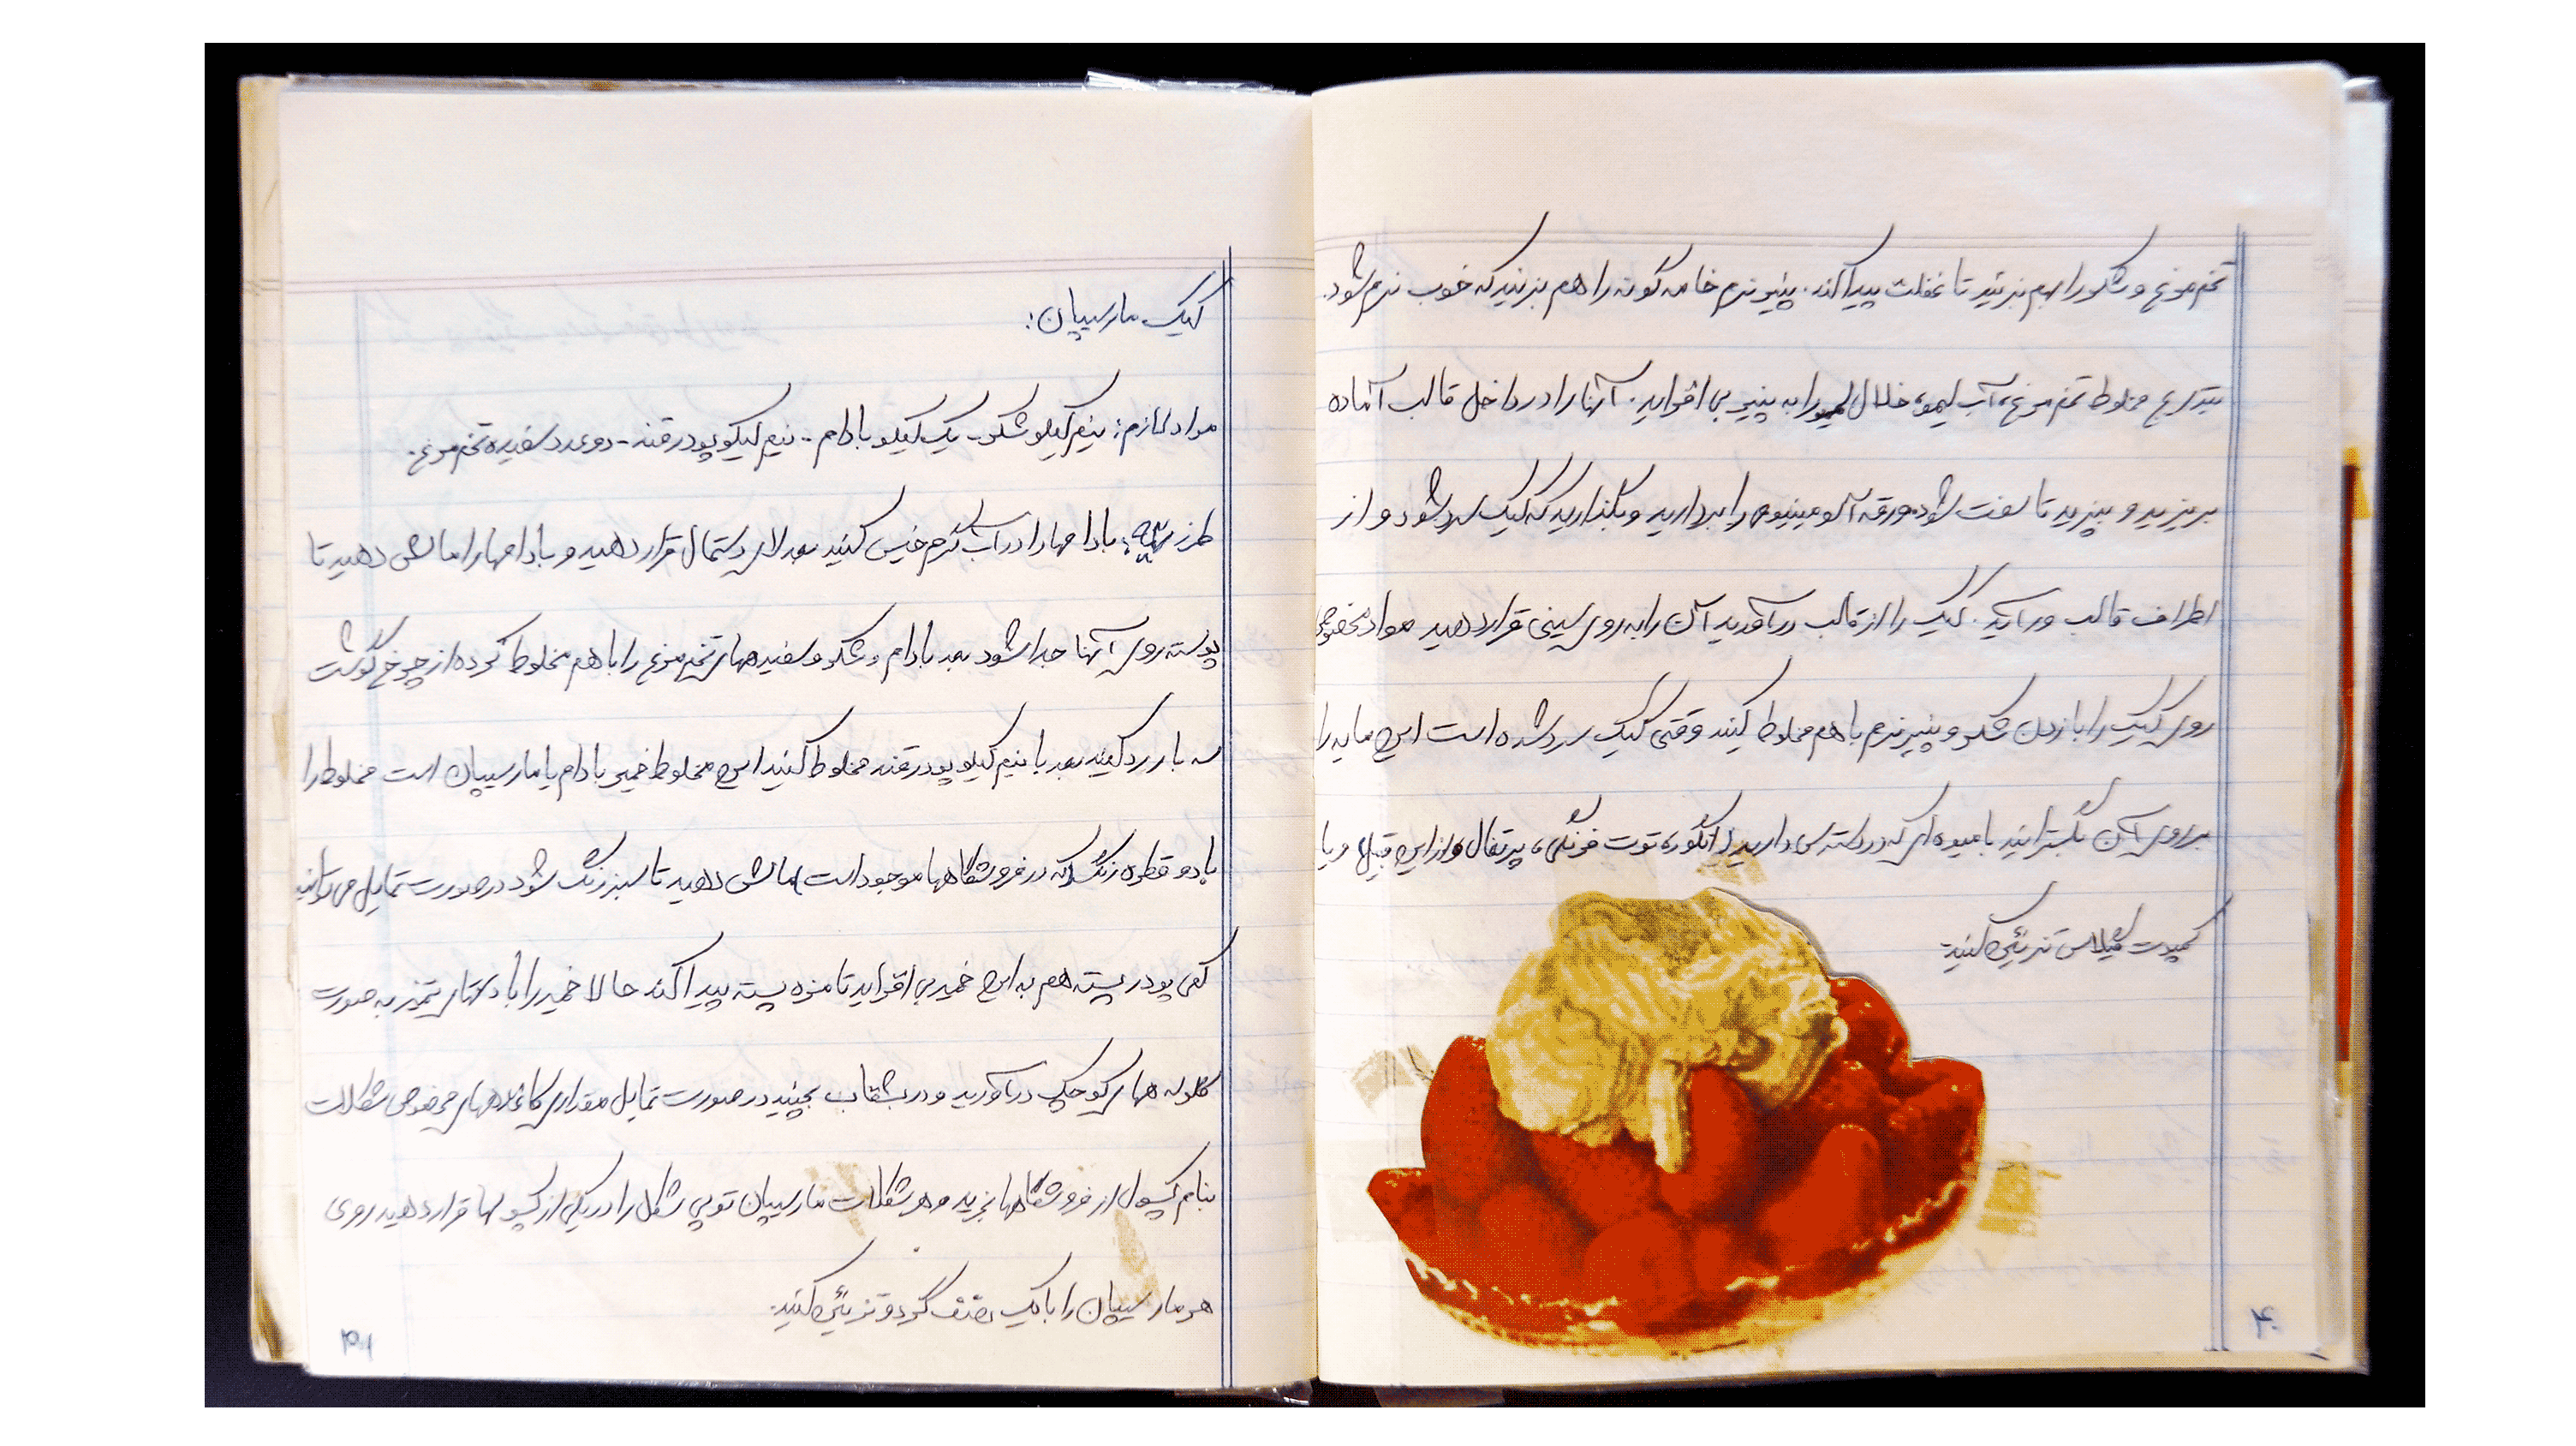 تخم مرغ و شکر را بهم بزنید تا غلظت پیدا کند. پنیر نرم خامه گونه را هم بزنید که خوب نرم شود.
بتدریج مخلوط تخم مرغ، آب لیمو، خلال لیمو را به پنیر بی افزاید. آنها را در داخل قالب آماده
بریزید و بپزید تا سفت شود. ورقه آلومینیوم را بردارید و بگذارید که کیک سرد شود و از
اطراف قالب ورآید. کیک را از قالب درآورید آن را به روی سینی قرار دهید مواد مخصوص
روی کیک را با زدن شکر و پنیر نرم با هم مخلوط کنید وقتی کیک سرد شده است این مایه را
برروی آن بگسترانید با میوه ای که در دسترس دارید (انگور، توت فرنگی، پرتقال و از این قبیل و یا
کمپوت گیلاس تزئین کنید.
۴۰
کیک مارسیپان:
مواد لازم: نیم کیلو شکر - یک کیلو بادام - نیم کیلو پودر قند - دو عدد سفیده تخم مرغ.
طرز تهیه: بادامها را در آب گرم خیس کنید بعد لای دستمال قرار دهید و بادامها را مالش دهید تا
پوسته روی آنها جدا شود بعد بادام و شکر و سفیده های تخم مرغ را با هم مخلوط کرده از چرخ گوشت
سه بار رد کنید بعد با نیم کیلو پودر قند مخلوط کنید این مخلوط خمیر بادام یا مارسیپان است مخلوط را
با دو قطره رنگ (که در فروشگاهها موجود است) مالش دهید تا سبز رنگ شود در صورت تمایل می توانید
کمی پودر پسته هم به این خمیر بی افزاید تا مزه پسته پیدا کند حالا خمیر را با دستهای تمیز به صورت
گلوله های کوچک درآورید و در بشقاب بچینید در صورت تمایل مقداری کاغذهای مخصوص شکلات
بنام کپسول از فروشگاهها بخرید و هر شکلات مارسیپان توپی شکل را در یکی از کپسولها قرار دهید روی
هر مارسیپان را با یک نصف گردو تزئین کنید.
۳۹